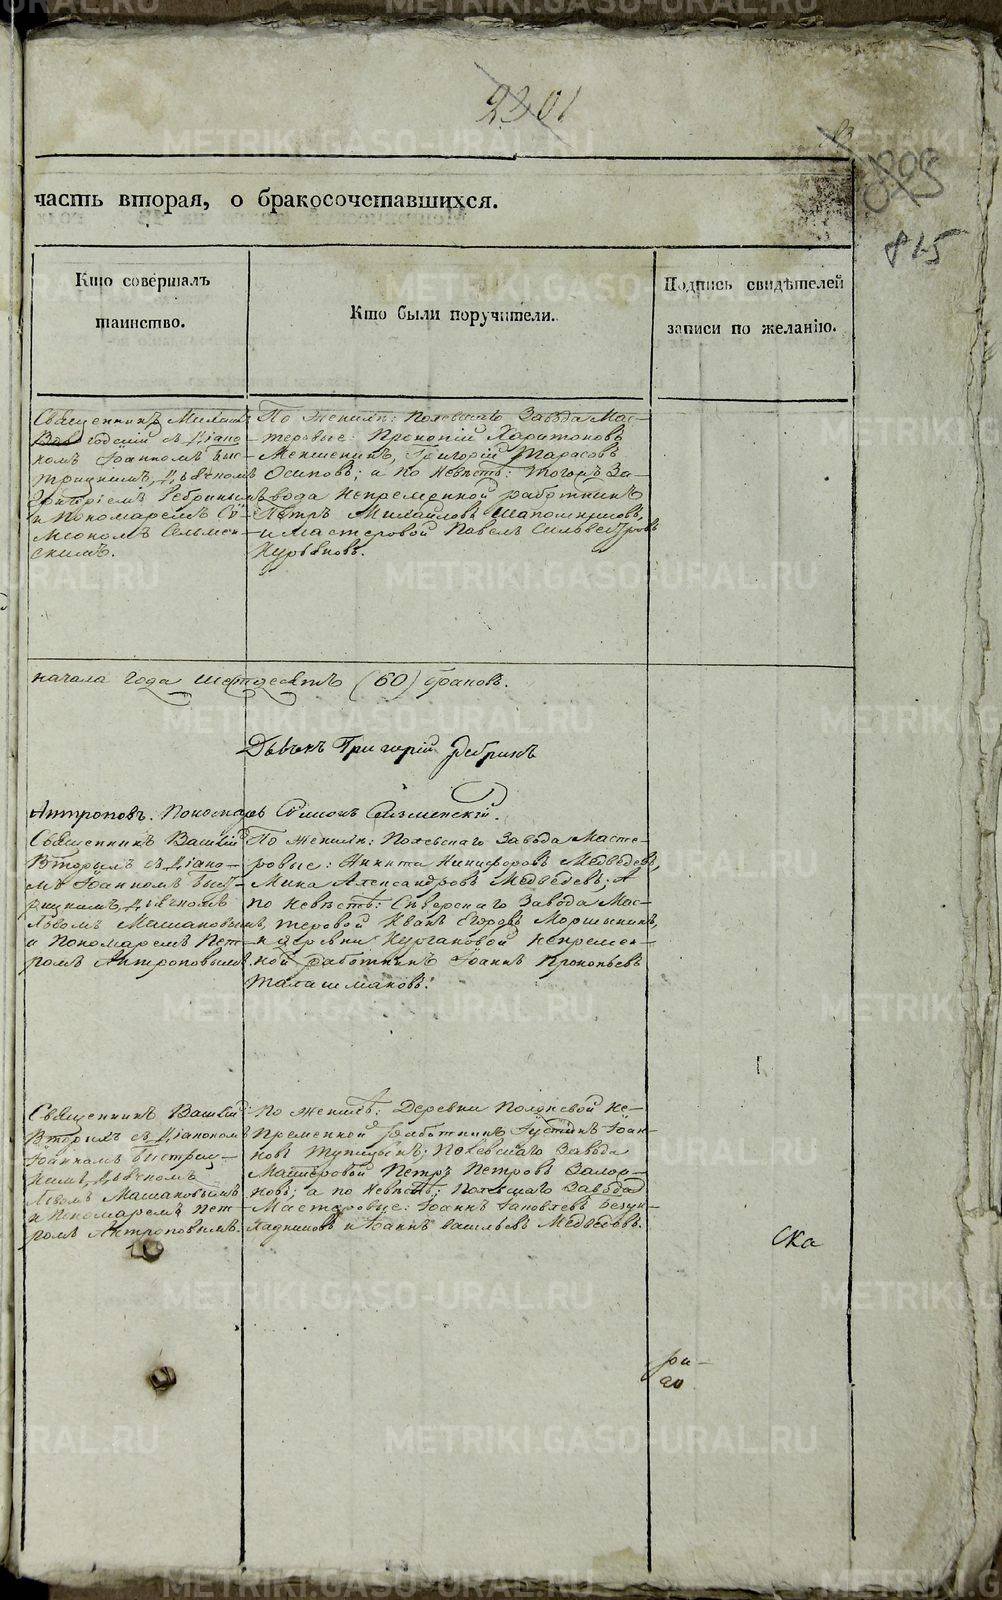 METRIKI.GASO-URAL.RU
2301
83
898
815
часть вторая, о бракосочетавшихся.
Кто совершалъ
таинство.
Кто были поручители.
Подпись свидѣтелей
записи по желанію.
Священникъ Михаилъ
годскій съ Діако-
номъ Іоанномъ Быс-
трицкимъ, Дьячкомъ
Григоріемъ Ребринымъ
и Пономаремъ Си-
меономъ Селмен-
скимъ.
По Женихѣ: Полевскаго Завода Мас-
теровые: Прокопій Харитоновъ
Меншенинъ, Григорій Тарасовъ
Осиповъ; а по Невѣстѣ: тогожъ За-
вода Непременной работникъ
Петръ Михайловъ Шапошниковъ,
и Мастеровой Павелъ Сильвестровъ
Курьяновъ.
начала года шестдесятъ (60) браковъ.
Дьячекъ Григорій Ребринъ
Антроповъ. Пономарь Симеонъ Селменскій.
Священникъ Василій
Вторыхъ съ Діако-
мъ Іоанномъ Быст-
рицкимъ, Дьячкомъ
Львомъ Машановымъ
и Пономаремъ Пет-
ромъ Антроповымъ.
По Женихѣ: Полевскаго Завода Масте-
ровые: Никита Никифоровъ Медведевъ,
Мина Александровъ Медведевъ; а
по Невѣстѣ: Северскаго Завода Мас-
теровой Иванъ Егоровъ Моршининъ,
и деревни Кургановой Непремен-
ной работникъ Іоаннъ Прокопьевъ
Талашмановъ.
Священникъ Василій
Вторыхъ съ Діакономъ
Іоанномъ Быстриц-
кимъ, Дьячкомъ
Львомъ Машановымъ
и Пономаремъ Пет-
ромъ Антроповымъ.
По Женихѣ: Деревни Полдневой Не-
пременной работникъ Іустинъ Іоан-
новъ Тупицынъ; Полевскаго Завода
Мастеровой Петръ Петровъ Запор-
новъ; а по Невѣстѣ; Полевскаго Завода
Мастеровые: Іоаннъ Іаковлевъ
и Іоаннъ Васильевъ Медведевъ.
ска
ра-
го